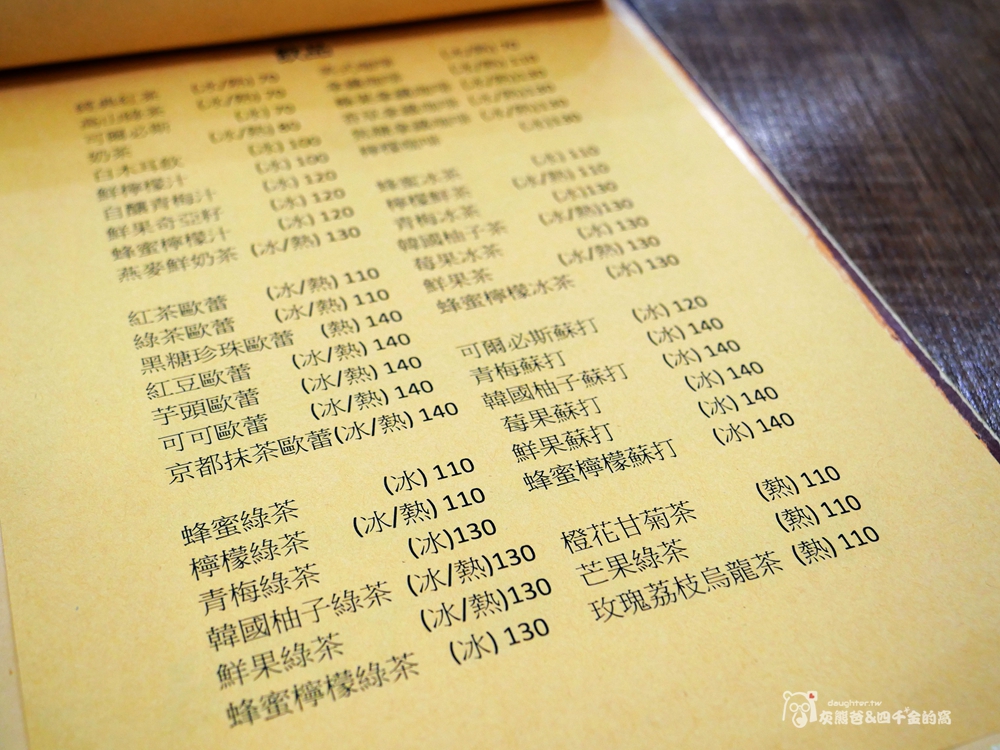 飲品
經典紅茶 (冰/熱)
高山綠茶 (冰/熱)
可爾必斯 (冰)
奶茶 (冰/熱) 80
白木耳飲 (冰) 100
鮮檸檬汁 (冰) 100
自釀青梅汁 (冰) 120
鮮果奇亞籽 (冰) 120
蜂蜜檸檬汁 (冰) 120
燕麥鮮奶茶 (冰/熱) 130
紅茶歐蕾 (冰/熱) 110
綠茶歐蕾 (冰/熱) 110
黑糖珍珠歐蕾 (熱) 140
紅豆歐蕾 (冰/熱) 140
芋頭歐蕾 (冰/熱) 140
可可歐蕾 (冰/熱) 140
京都抹茶歐蕾(冰/熱) 140
蜂蜜綠茶 (冰) 110
檸檬綠茶 (冰/熱) 110
青梅綠茶 (冰)130
韓國柚子綠茶 (冰/熱)130
鮮果綠茶 (冰/熱)130
蜂蜜檸檬綠茶 (冰) 130
美式咖啡
拿鐵咖啡
榛果拿鐵咖啡
香草拿鐵咖啡
焦糖拿鐵咖啡
檸檬咖啡
蜂蜜冰茶 (冰) 110
檸檬鮮茶 (冰/熱) 110
青梅冰茶 (冰)130
韓國柚子茶 (冰/熱)130
莓果冰茶 (冰) 130
鮮果茶 (冰/熱) 130
蜂蜜檸檬冰茶 (冰) 130
可爾必斯蘇打 (冰) 120
青梅蘇打 (冰) 140
韓國柚子蘇打 (冰) 140
莓果蘇打 (冰) 140
鮮果蘇打 (冰) 140
蜂蜜檸檬蘇打 (冰) 140
橙花甘菊茶 (熱) 110
芒果綠茶 (熱) 110
玫瑰荔枝烏龍茶 (熱) 110
daughter.tw
灰熊爸&四千金的窩